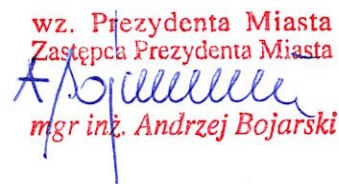 wz. Prezydenta Miasta
Zastępca Prezydenta Miasta
mgr inż. Andrzej Bojarski